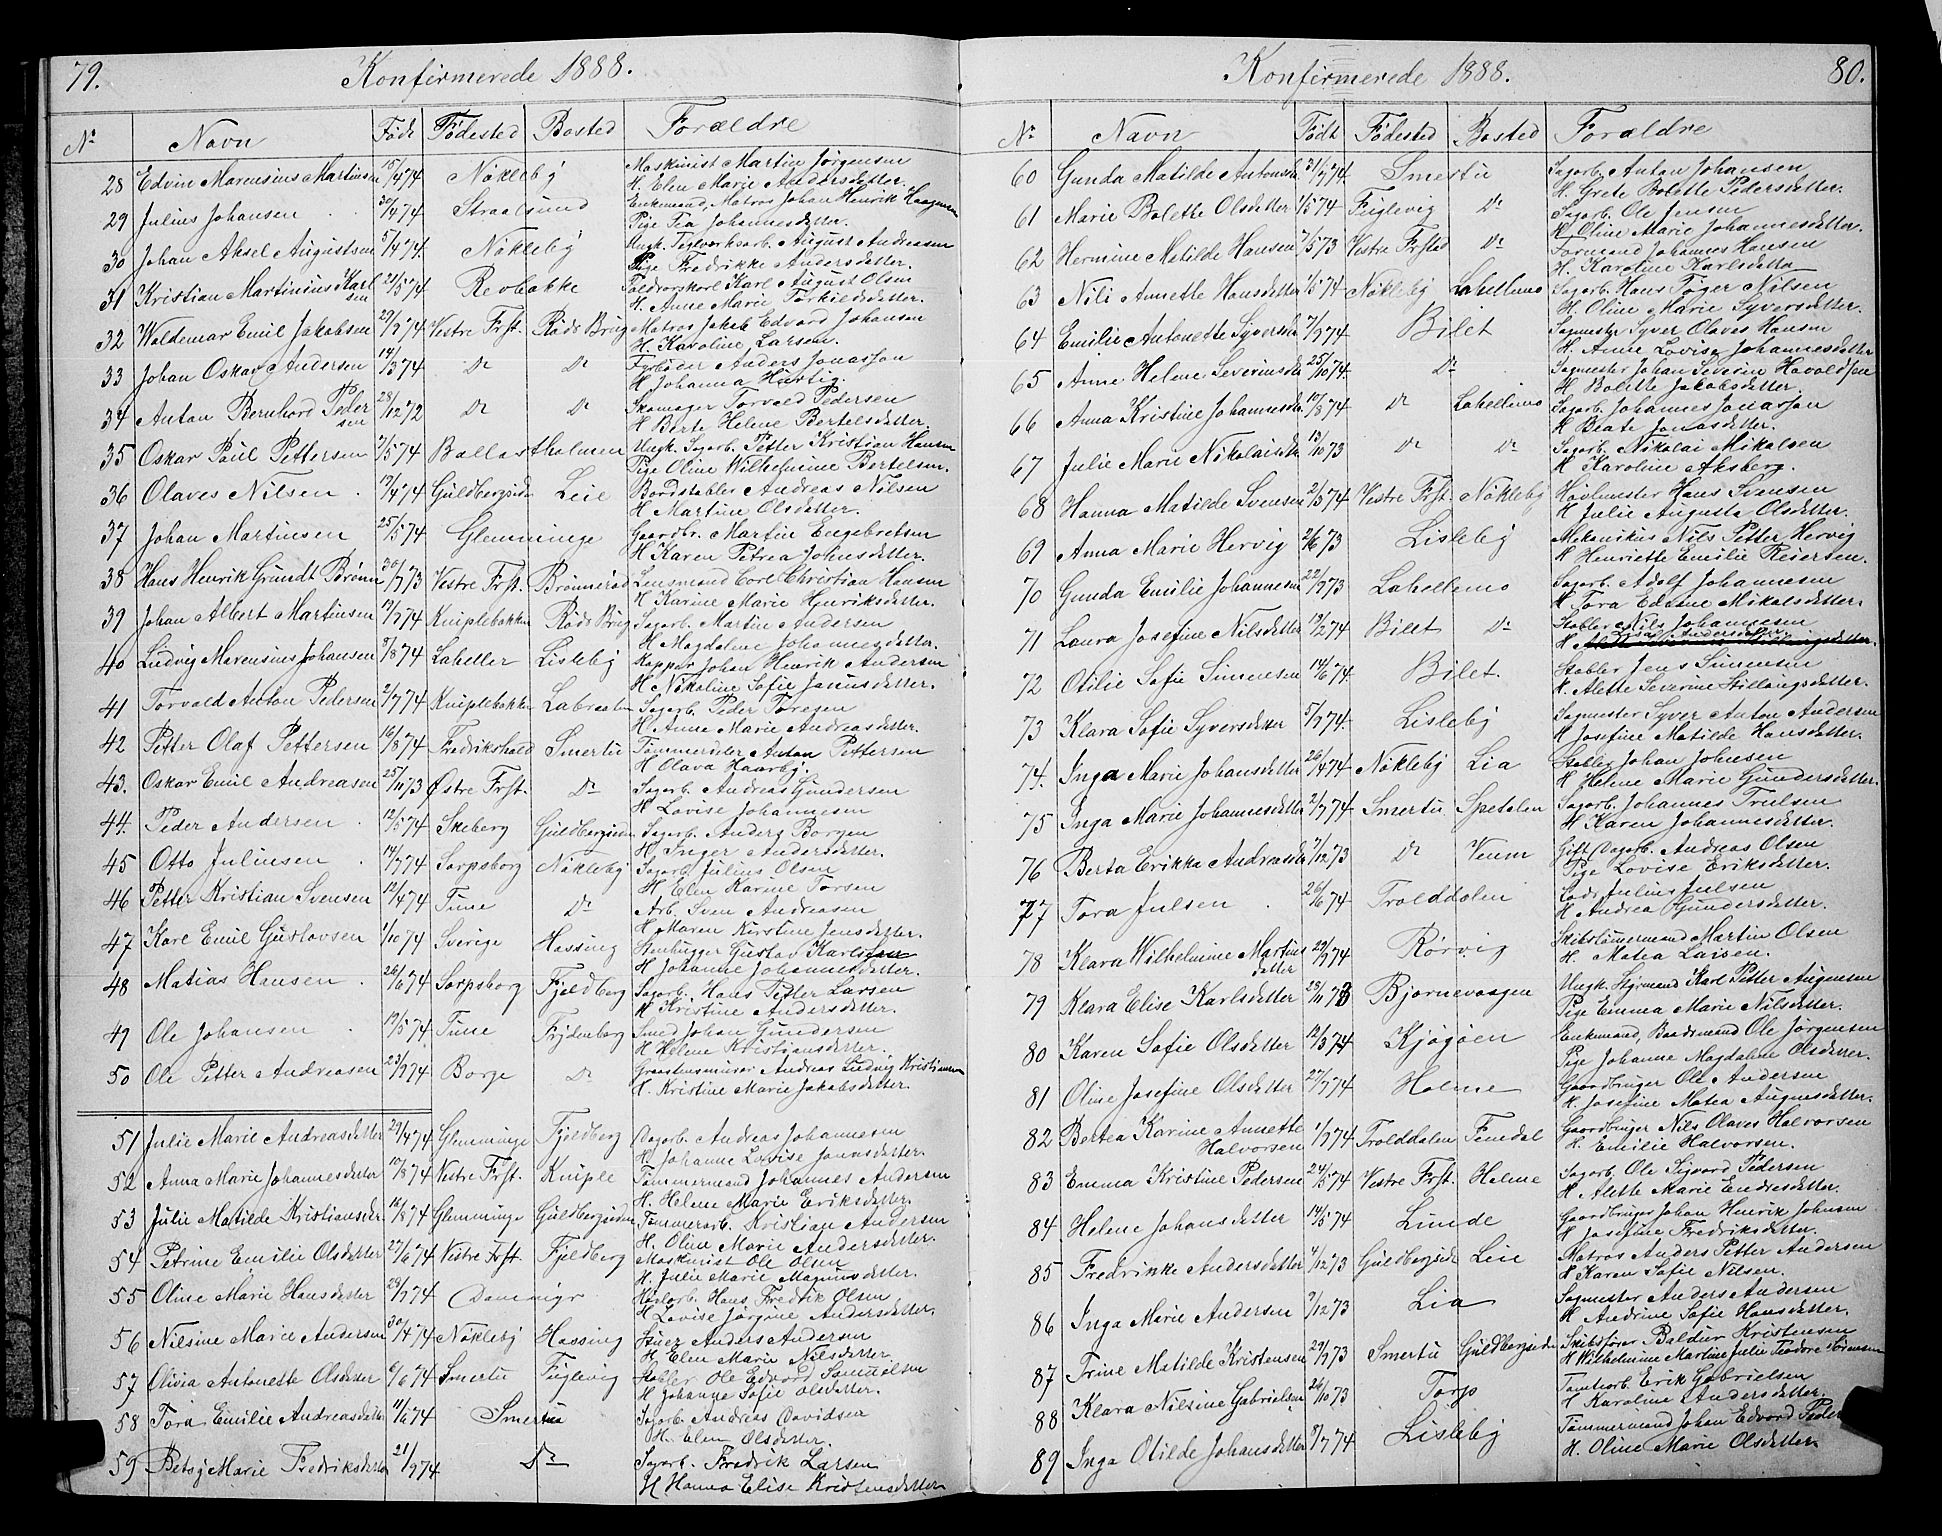 79. Konfirmerede 1888.
No Navn Født Fødested Bosted Forældre
28 Edvin Marensius Martinsen 15/4 74 Nökleby Maskinist Martin Jörgensen
H. Elen Marie Andersdetter.
29 Julius Johansen 30/4 74 Straalsund Enkemand, Matros Johan Henrik Haagensen
Pige Tea Johannesdetter.
30 Johan Aksel Augustsen 5/4 74. Nökleby Ungk. Teglverksarb. August Andreasen
Pige Fredrikke Andersdetter.
31 Kristian Martinius Karl 21/5 74 Revbakke Karl August Olsen
sen H. Anne Marie Torkildsdetter.
32 Waldemar Emil Jakobsen 22/2 74 Vestre Frst. Röds Brug Matros Jakob Edvard Johansen
H. Karoline Larsen.
33 Johan Oskar Andersen 14/3 74 Do Do Fyrböder Anders Jonassen
H Johanna Härtig.
34 Anton Bernhard Peder 28/12 72 Do Do Skomager Torvald Pedersen
sen H Berte Helene Bertelsdetter.
35 Oskar Paul Pettersen 7/5 74 Ballastholmen Ungk. Sagarb. Petter Kristian Hansen
Pige Oline Wilhelmine Bertelsen.
36 Olaves Nilsen 19/4 74 Guldbergsiden Leie Bordstabler Andreas Nilsen
H Martine Olsdetter.
37 Johan Martinsen 25/5 74 Glemminge Gaardbr. Martin Engebretsen
H Karen Petrea Johnsdetter.
38 Hans Henrik Grundt Brönn 30/7 73 Vestre Frst. Brönneröd Lensmand Carl Christian Hansen
H Karine Marie Henriksdetter.
39 Johan Albert Martinsen 19/2 74 Kniplebakken Röds Brug Sagarb. Martin Andersen
H Magdalene Johannesdetter.
40 Ludvig Marensius Johansen 3/8 74 Laheller Lisleby Kapper Johan Henrik Andersen
H Nikoline Sofie Jonasdetter.
41 Torvald Anton Pedersen 2/7 74 Kniplebakken Sagarb. Peder Toregen
H Anne Marie Andreasdetter.
42 Petter Olaf Pettersen 16/8 74 Fredrikshald Smertu Tømmeröder Anton Pettersen
H Olava Haarby.
43. Oskar Emil Andreasen 25/11 73 Østre Frst. Do Sagarb. Andreas Gundersen
H Lovise Johannesen
44. Peder Andersen 12/5 74 Skeberg Guldbergsiden Sagarb. Anders Borgen
H. Inger Andersdetter.
45 Otto Juliussen 14/7 74 Sarpsborg Nökleby Sagarb. Julius Olsen
H Elen Karine Torsen
46 Petter Kristian Svensen 12/4 74 Tune Do Arb. Sven Andreasen
H Maren Kirstine Jensdetter.
47 Karl Emil Gustavsen 1/10 74 Sverige Hassing Stenhugger Gustav Karlsson
H Johanne Johannesdetter.
48 Matias Hansen 26/6 74 Sarpsborg Fjeldberg Sagarb. Hans Petter Larsen
H Kristine Andersdetter.
49 Ole Johansen 19/5 74 Tune Frydenberg Smed Johan Gundersen
H Helene Kristiansdetter.
50 Ole Petter Andreasen 23/9 74 Borge Do Graastensmurer Andreas Ludvig Kristiansen
H. Kristine Marie Jakobsdetter.
51 Julie Marie Andreasdetter 29/4 74 Glemminge Fjeldberg Sagarb. Andreas Johannesen
H. Johanne Lovise Jonasdetter.
52 Anna Marie Johannesdetter 10/8 74 Vestre Frst. Kniple Tømmermand Johannes Andersen
H. Helene Marie Eriksdetter.
53 Julie Matilde Kristiansdtr 16/8 74 Glemminge Guldbergsiden Tømmerarb. Kristian Andersen
H. Oline Marie Andersdetter.
54 Petrine Emilie Olsdetter 27/6 74 Vestre Frst. Fjeldberg Maskinist Ole Olsen
H. Julie Marie Magnusdetter.
55 Oline Marie Hansdetter 29/7 74 Dammyr Hans Fredrik Olsen
H Lovise Jörgine Andersdetter.
56 Nilsine Marie Andersen 30/4 74 Nökleby Hassing Anders Andersen
H. Elen Marie Nilsdetter
57 Olivia Antonette Olsdetter 6/6 74 Smertu Fuglevig Stabler Ole Edvard Samuelsen
H Johanne Sofie Olsdetter.
58 Tora Emilie Andreasdetter 11/6 74 Smertu Sagarb. Andreas Davidsen
H. Elen Olsdetter.
59 Betsy Marie Fredriksdetter 21/9 74 Do Sagarb. Fredrik Larsen
H Hanna Elise Kristensdetter
Konfirmerede 1888. 80.
No Navn Født Fødested Bosted Forældre
60 Gunda Matilde Antonsdtr 31/7 74 Smertu Sagarb. Anton Johansen
H. Grete Bolette Pedersdetter.
61 Marie Bolette Olsdetter 1/5 74 Fuglevig Do Sagarb. Ole Jensen
H Oline Marie Johannesdetter.
62 Hermine Matilde Hansen 7/5 73 Vestre Frstad Do Formand Johannes Hansen
H. Karoline Karlsdetter
63 Nili Annette Hansdetter 1/6 74 Nökleby Lahellemo Sagarb. Hans Töger Nilsen
H. Oline Marie Syversdetter.
64 Emilie Antonette Syversdtr 7/2 74 Bilet Sagmester Syver Olaves Hansen
H. Anne Lovise Johannesdetter
65 Anne Helene Severinsdtr 25/10 74. Do Sagmester Johan Severin Havaldsen
H Bolette Jakobsdetter.
66 Anna Kristine Johannesdtr. 10/8 74 Do Lahellemo Sagarb. Johannes Jonassen
H Beate Jonasdetter.
67 Julie Marie Nikolaisdtr 13/10 73 Do Do Sagarb. Nikolai Mikalsen
H Karoline Aksberg.
68 Hanna Matilde Svensen 2/3 74 Vestre Frst. Nökleby Hövlmester Hans Svensen
H Julie Augusta Olsdetter.
69 Anna Marie Hervig 2/6 73 Lisleby Mekanikus Nils Petter Hervig
H Henriette Emilie Reiersen.
70 Gunda Emilie Johannesen 22/2 73 Lahellemo Sagarb. Adolf Johannesen
H Tora Edvine Mikalsdetter.
71 Laura Josefine Nilsdetter 19/2 74 Bilet Do Stabler Nils Johannesen
H
72 Otilie Sofie Simensen 14/6 74 Bilet. Stabler Jens Simensen
H. Alette Severine Stillaugsdetter.
73 Klara Sofie Syversdetter 5/7 74. Lisleby Sagmester Syver Anton Andersen
H Josefine Matilde Hansdetter.
74. Inga Marie Johansdetter 26/4 74 Nökleby Lia Stabler Johan Johnsen
H Helene Marie Gundersdetter.
75 Inga Marie Johannesdetter 2/7 74 Smertu Spetalen Sagarb. Johannes Truelsen
H Karen Johannesdetter.
76 Berta Erikka Andreasdtr 7/12 73 Do Veum Gift Sagarb. Andreas Olsen
Pige Lovise Eriksdetter.
77 Tora Julsen 26/6 74 Trolddalen Lods Julius Julsen
H Andrea Gundersdetter.
78 Klara Wilhelmine Martins 29/9 74 Rörvig Skibstømermand Martin Olsen
detter H. Matea Larsen.
79 Klara Elise Karlsdetter 23/11 73 Bjørnevaagen Ungk. Styrmand Karl Petter Augensen
Pige Emma Marie Nilsdetter.
80 Karen Sofie Olsdetter 12/3 74 Kjøgøen Enkemand, Baadsmand Ole Jørgensen
Pige Johanne Magdalene Olsdetter.
81 Oline Josefine Olsdetter 27/7 74 Holme Gaardbruger Ole Andersen
H. Josefine Matea Augensdetter.
82 Bertea Karine Annette 1/9 74 Trolddalen Femdal Gaardbruger Nils Olaves Halvorsen
Halvorsen H. Emilie Halvorsen.
83 Emma Kristine Pedersen 24/5 74 Vestre Frst. Holme Sagarb. Ole Sigvard Pedersen
H. Alette Marie Endresdetter.
84 Helene Johansdetter 14/5 74 Lunde Gaardbruger Johan Henrik Johnsen
H Josefine Fredriksdetter.
85 Fredrikke Andersdetter 4/12 73 Guldbergsiden Leie Matros Anders Petter Andersen
H Karen Sofie Nilsen.
86 Inga Marie Andersen 7/12 73 Lia Sagmester Anders Andersen
H Andrine Sofie Hansdetter.
87 Trine Matilde Kristensen 29/9 73 Smertu Guldbergsiden Skibsfører Baldur Kristensen
H Wilhelmine Martine Julie Teodore Sörensen
88 Klara Nilsine Gabrielsen 26/10 73 Torp Tomtearb. Erik Gabrielsen
H Karoline Andersdetter.
89 Inga Otilde Johansdetter 9/7 74 Lisleby Tømmermand Johan Edvard Peder
H. Oline Marie Olsdetter